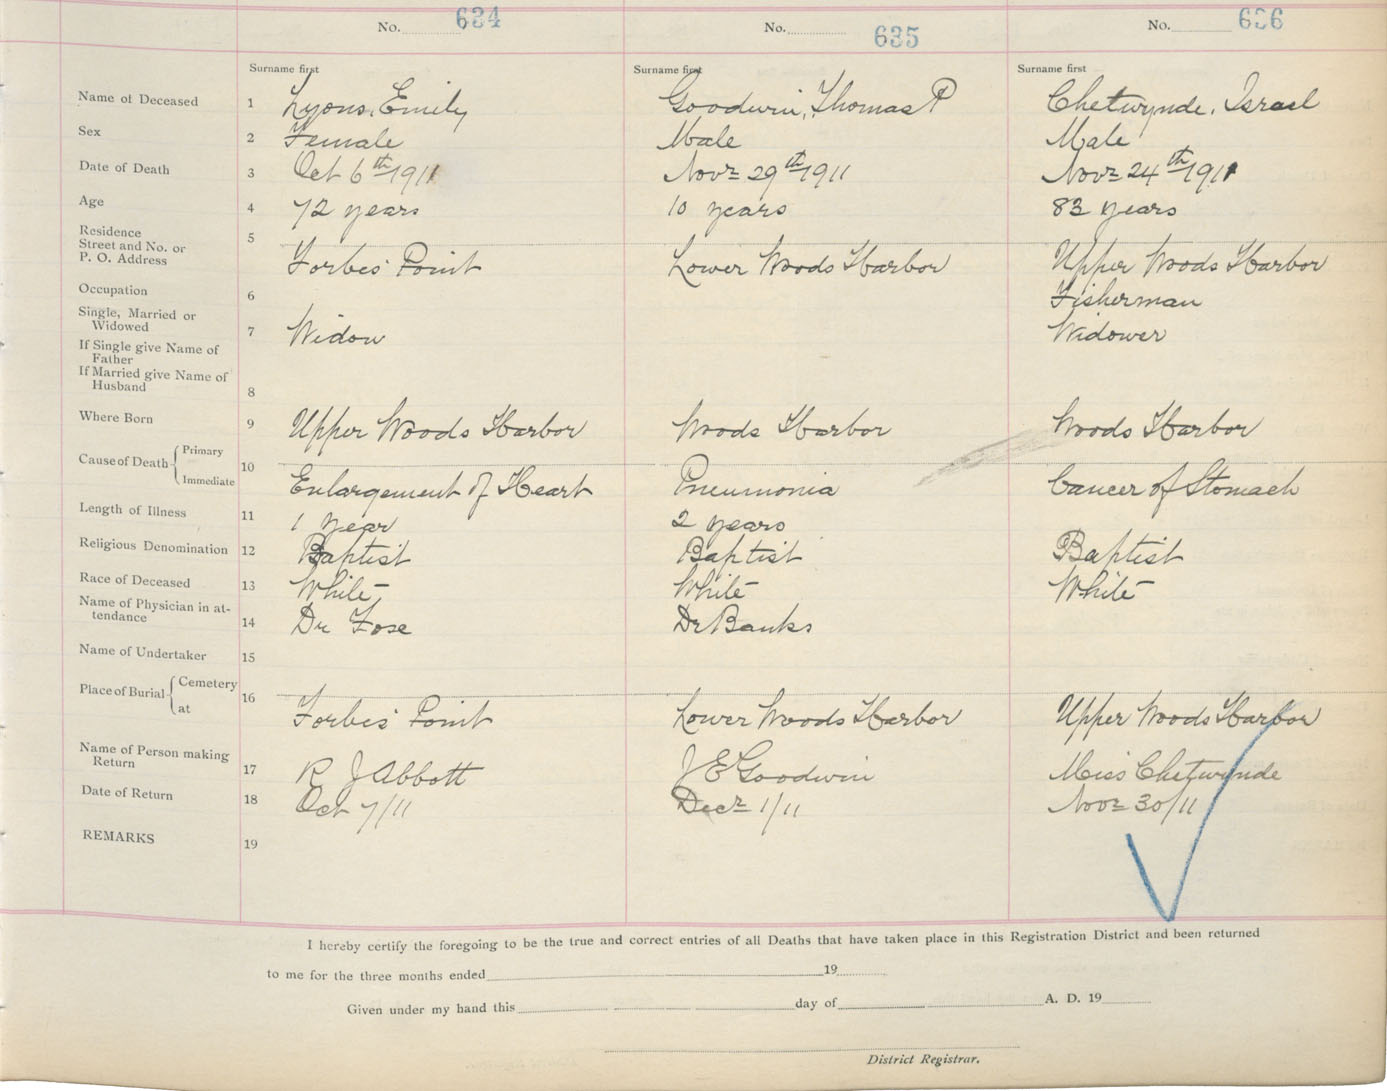 No. 634 No. 635 No. 636
Surname first Surname first Surname first
Name of Deceased 1 Lyons, Emily Goodwin, Thomas P Chetwynde, Israel
Sex 2 Female Male Male
Date of Death 3 Oct 6th 1911 Novr 29th 1911 Novr 24th 1911
Age 4 72 years 10 years 83 years
Residence
Street and No. or 5
P. O. Address Forbes' Point Lower Woods Harbor Upper Woods Harbor
Occupation 6 Fisherman
Single, Married or
Widowed 7 Widow Widower
If Single give Name of
Father
If Married give Name of
Husband 8
Where Born 9 Upper Woods Harbor Woods Harbor Woods Harbor
Cause of Death Primary
Immediate 10 Enlargement of Heart Pneumonia Cancer of Stomach
Length of Illness 11 1 year 2 years
Religious Denomination 12 Baptist Baptist Baptist
Race of Deceased 13 White White White
Name of Physician in at-
tendance 14 Dr Fose Dr Banks
Name of Undertaker 15
Place of Burial Cemetery 16
at Forbes' Point Lower Woods Harbor Upper Woods Harbor
Name of Person making
Return 17 R J Abbott J E Goodwin Miss Chetwynde
Date of Return 18 Oct 7/11 Decr 1/11 Novr 30/11
REMARKS 19
I hereby certify the foregoing to be the true and correct entries of all Deaths that have taken place in this Registration District and been returned
to me for the three months ended 19
Given under my hand this day of A. D. 19
District Registrar.